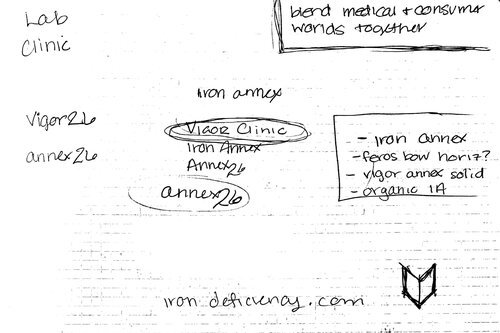 Lab
Clinic
blend medical + consumer
worlds together
iron annex
Vigor26
annex26
VIGOR CLINIC
Iron Annex
Annex26
annex26
- iron annex
- feros bow horiz?
- vigor annex solid
- organic IA
iron deficiency.com